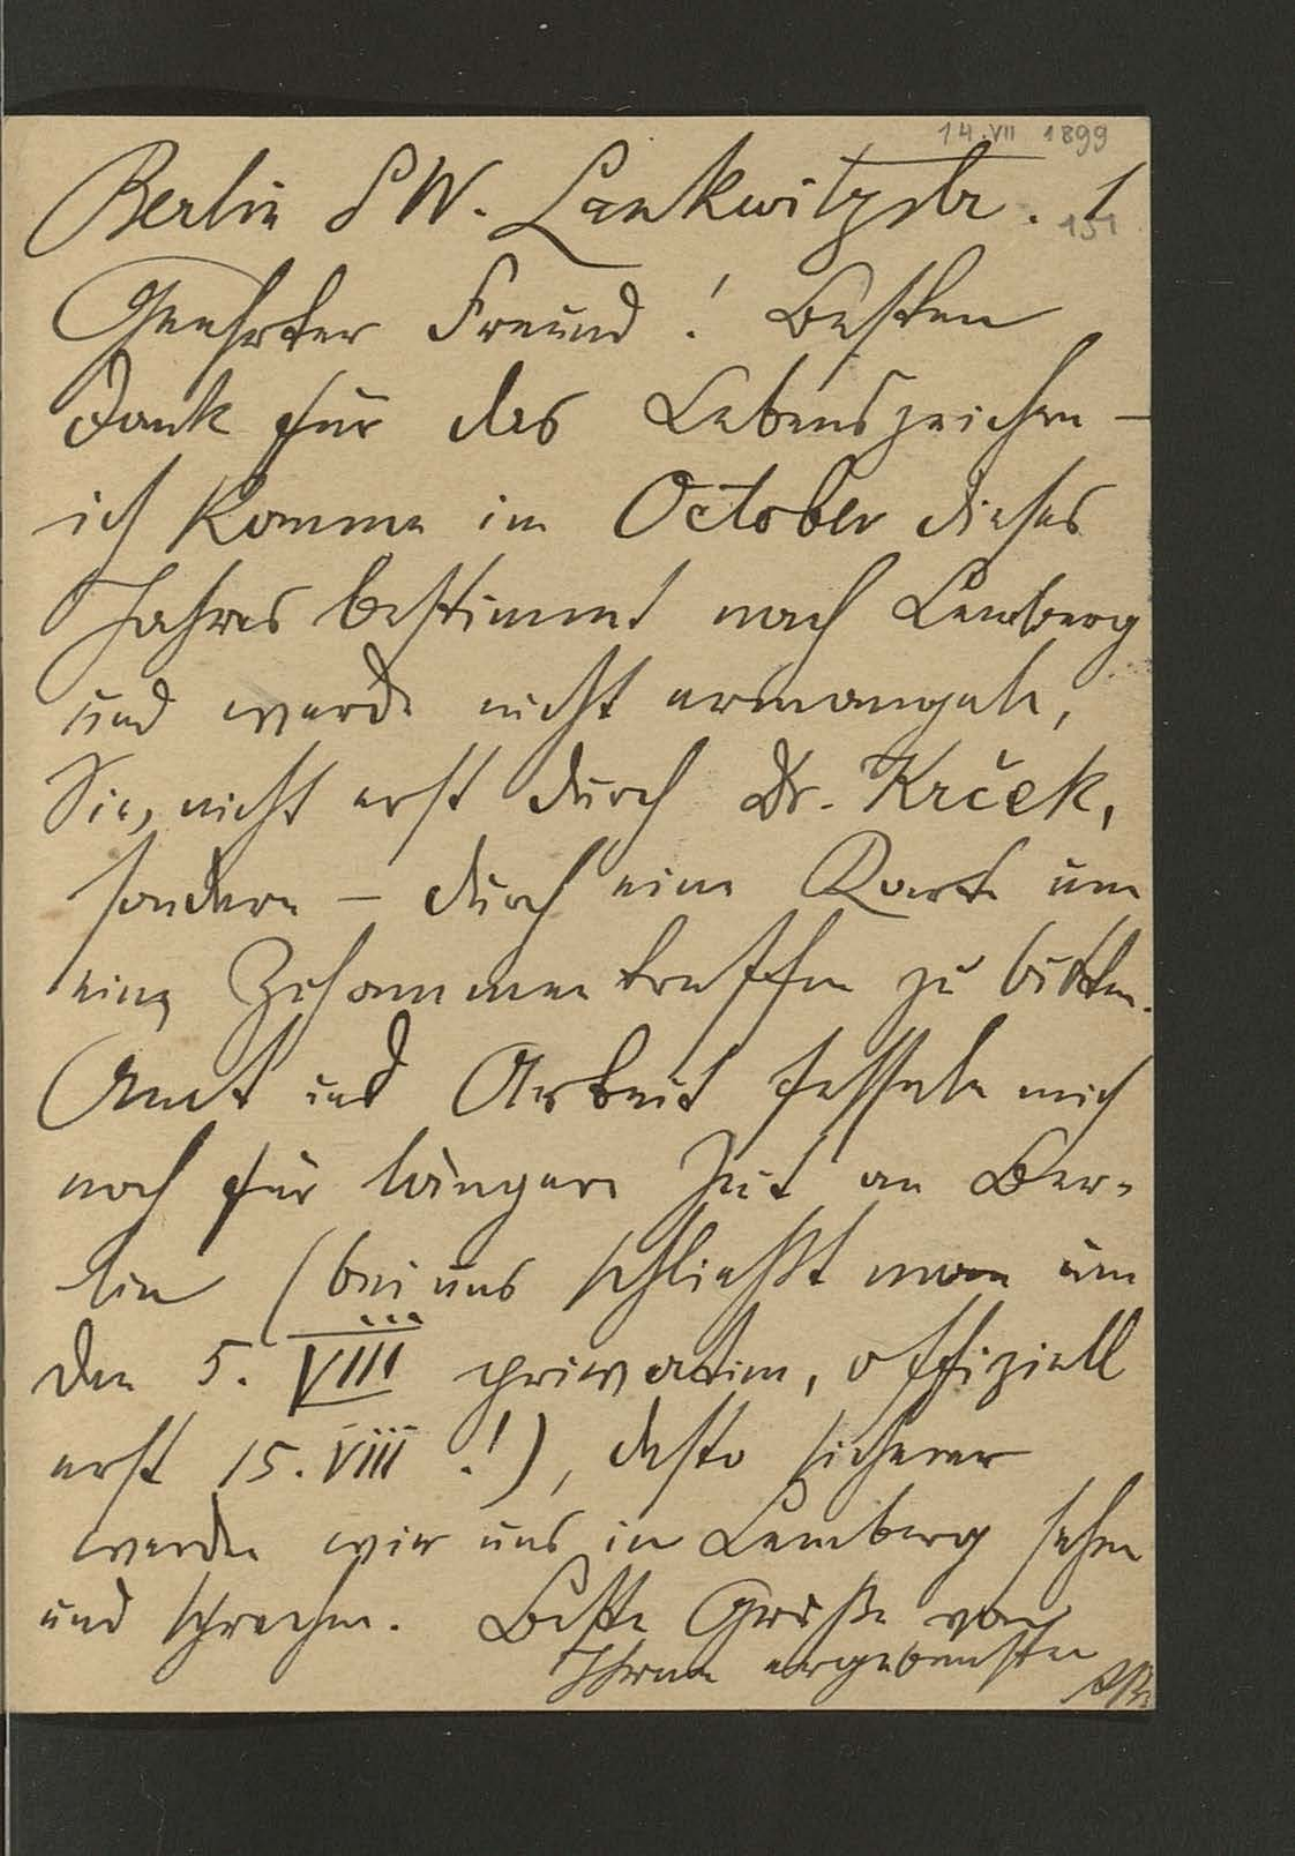 14.VII 1899
Berlin SW. Lankwitzstr. 1
151
Geehrter Freund! Besten
Dank für das Lebenszeichen –
ich komme im October dieses
Jahres bestimmt nach Lemberg
und werde nicht ermangeln,
Sie, nicht erst durch Dr. Krček,
sondern – durch eine Karte um
ein Zusammentreffen zu bitten.
Amt und Arbeit fesseln mich
noch für längere Zeit an Ber-
lin (bei uns schließt man um
den 5. VIII privatim, offiziell
erst 15. VIII !), desto sicherer
werden wir uns in Lemberg sehen
und sprechen. Beste Grüße von
Ihrem ergebensten